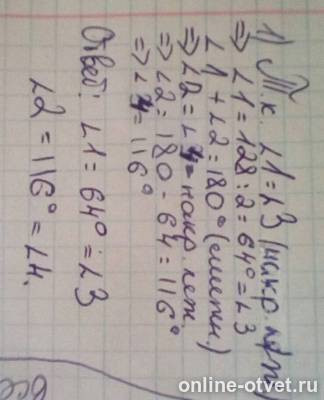 1) Т.к. ∠1=∠3 (накр. леж)
⇒ ∠1=128:2=64°=∠3
∠1+∠2=180° (смежн.)
⇒ ∠2=∠4 = накр. леж.
⇒ ∠2=180-64=116°
⇒ ∠4=116°
Ответ: ∠1=64°=∠3
∠2=116°=∠4.
все
online-otvet.ru